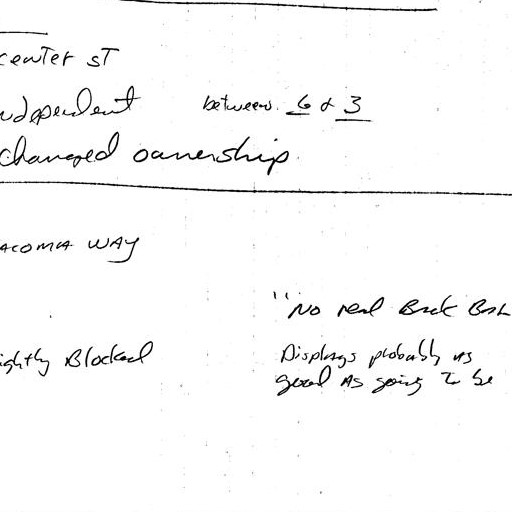 center ST
ndependent between 6 & 3
changed ownership
ACOMA WAY
"No real Back Bar
ightly Blocked Displays probably as
good AS going to be